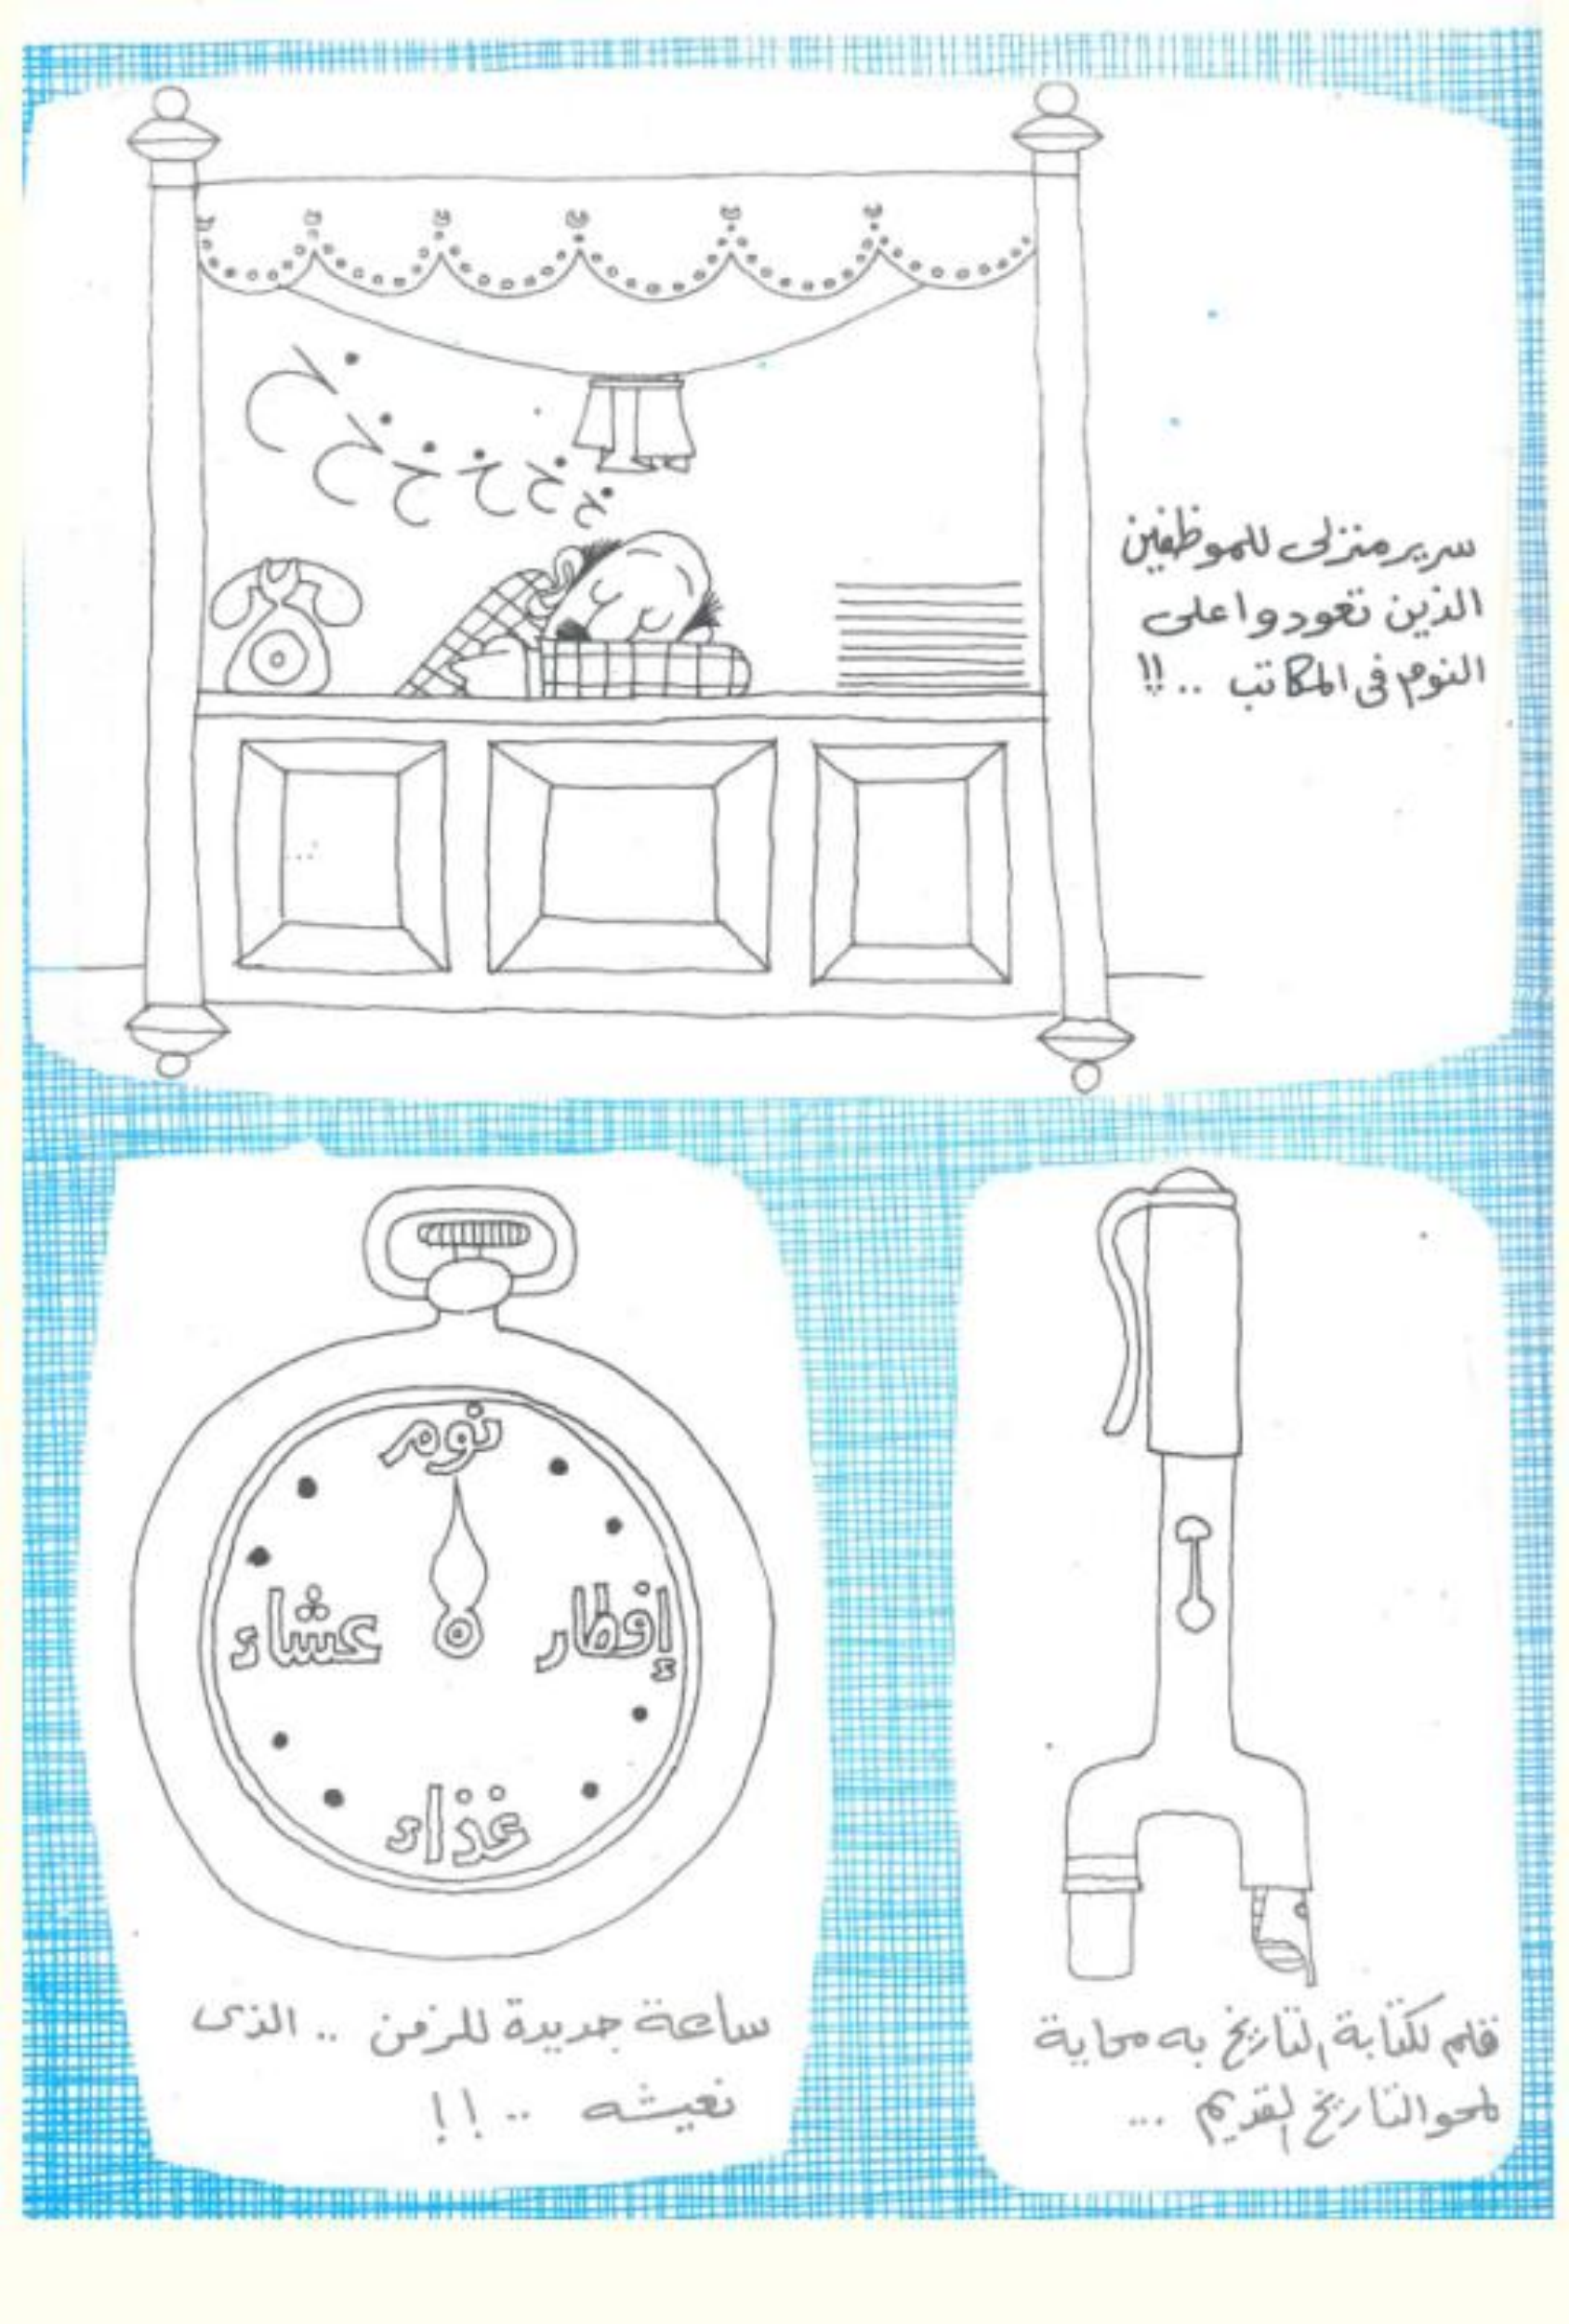 خ خ خ خ خ خ
سرير منزلى للموظفين
الذين تعودوا على
النوم فى المكاتب ..!!
نوم
إفطار
عشاء
غذاء
ساعة جديدة للزمن .. الذى
نعيشه ..!!
قلم لكتابة التاريخ به محاية
لمحو التاريخ القديم ...